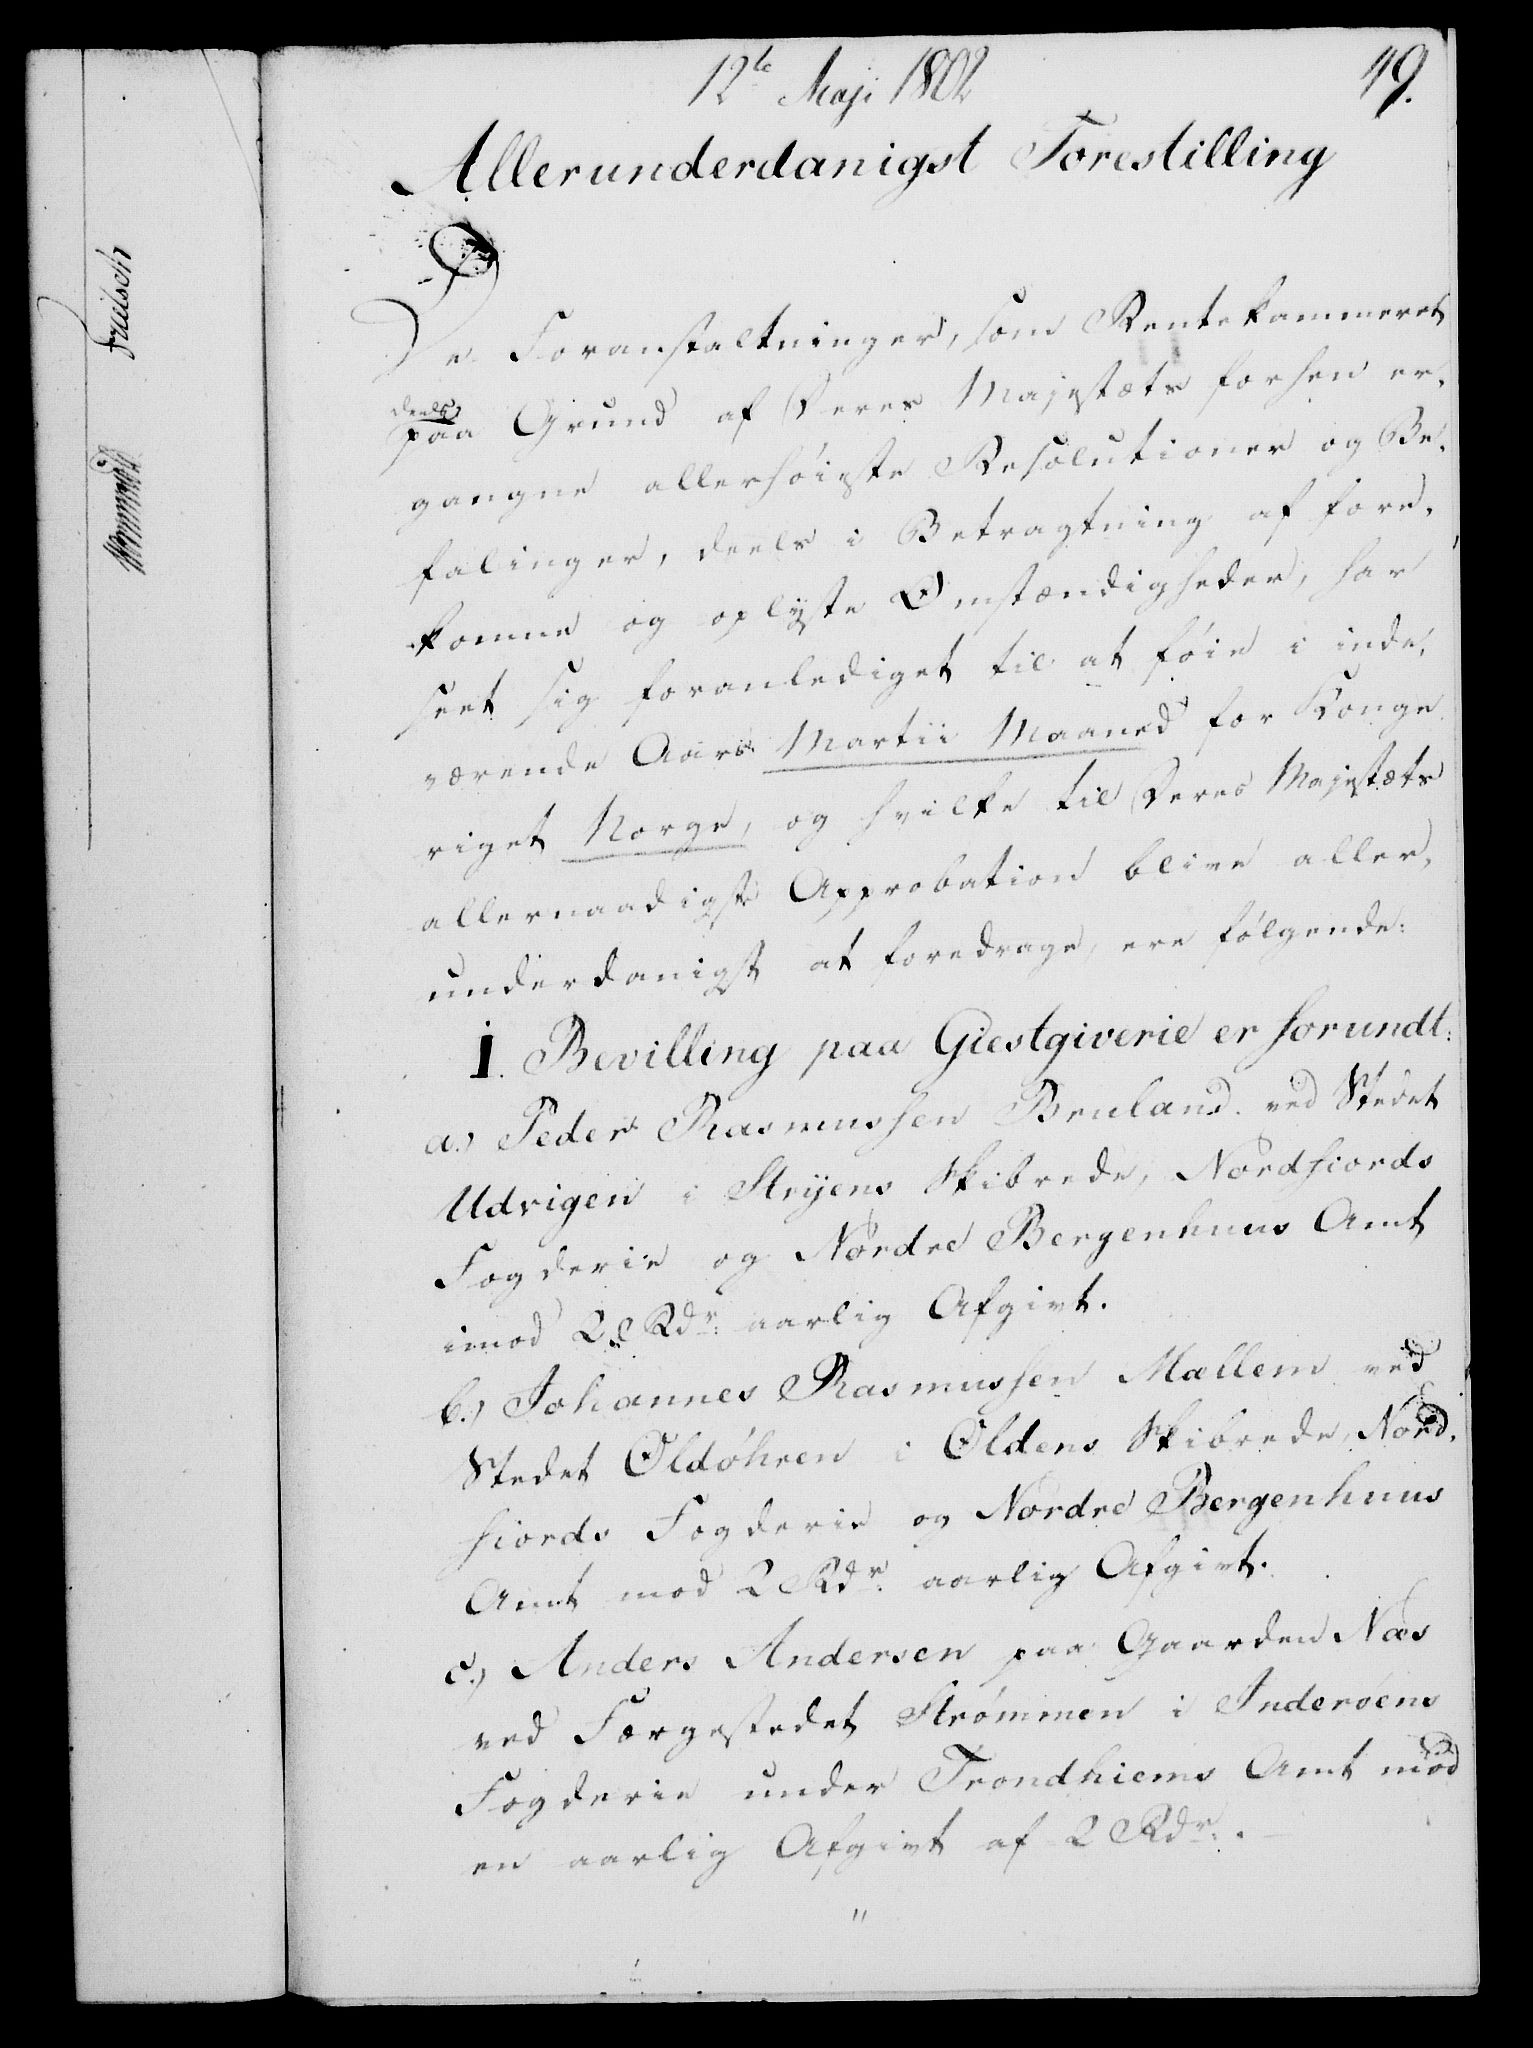 12te Maji 1802
49.
Allerunderdanigst Forestilling
De Foranstaltninger, som Rentekammeret
deels
paa Grund af Deres Majestæts forhen er-
gangne allerhöieste Resolutioner og Be-
falinger, deels i Betragtning af fore-
komne og oplyste Omstændigheder, har
seet sig foranlediget til at föie i inde-
værende Aars Martii Maaned for Konge
riget Norge, og hvilke til Deres Majestæts
allernaadigste Approbation blive aller-
underdanigst at foredrage, ere fölgende:
I. Bevilling paa Giestgiverie er forundt:
a.) Peder Rasmussen Bruland ved Stedet
Udvigen i Stryens Skibrede, Nordfiords
Fogderie og Nordre Bergenhuus Amt
imod 2 Rdr. aarlig Afgivt.
b.) Johannes Rasmussen Mællem ved
Stedet Oldöhren i Oldens Skibrede, Nord-
fiords Fogderie og Nordre Bergenhuus
Amt mod 2 Rdr. aarlig Afgivt.
c.) Anders Andersen paa Gaarden Næs
ved Færgestedet Strömmen i Inderöens
Fogderie under Trondhiems Amt mod
en aarlig Afgivt af 2 Rdr.